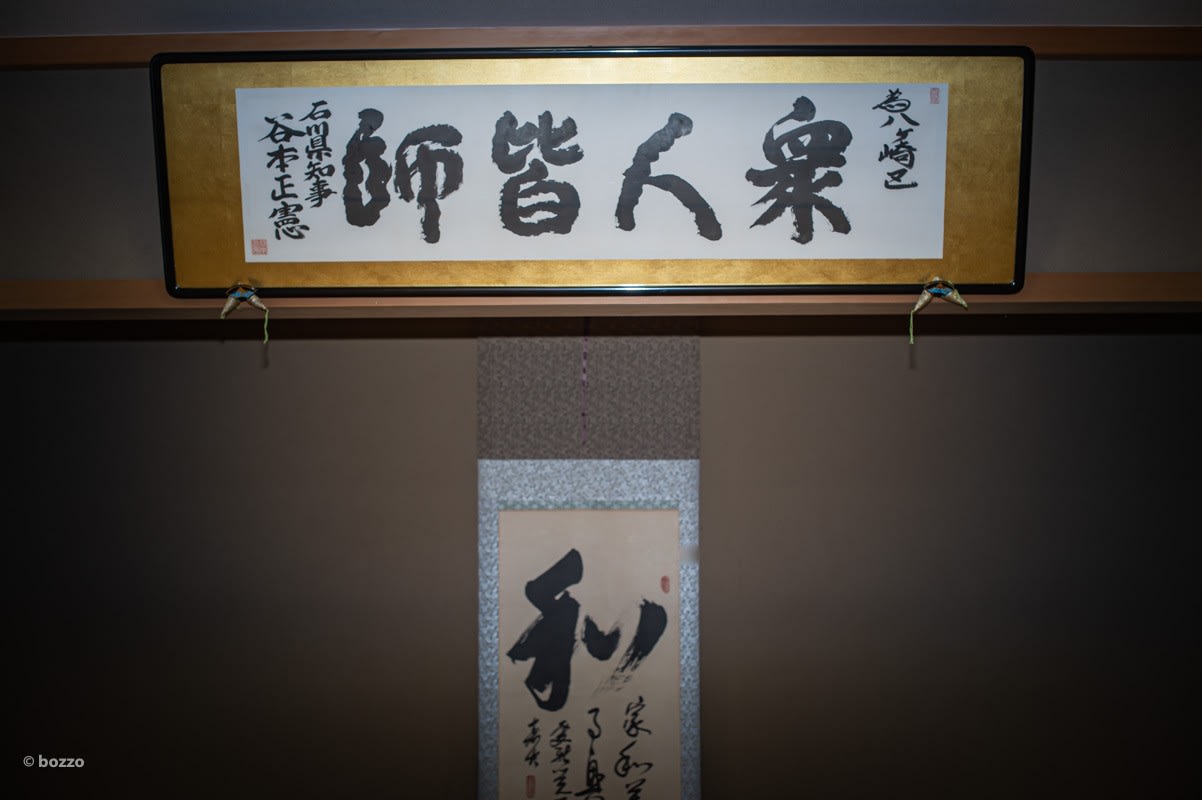 為八ヶ崎区
衆人皆師
石川県知事
谷本正憲
和
家和
事興